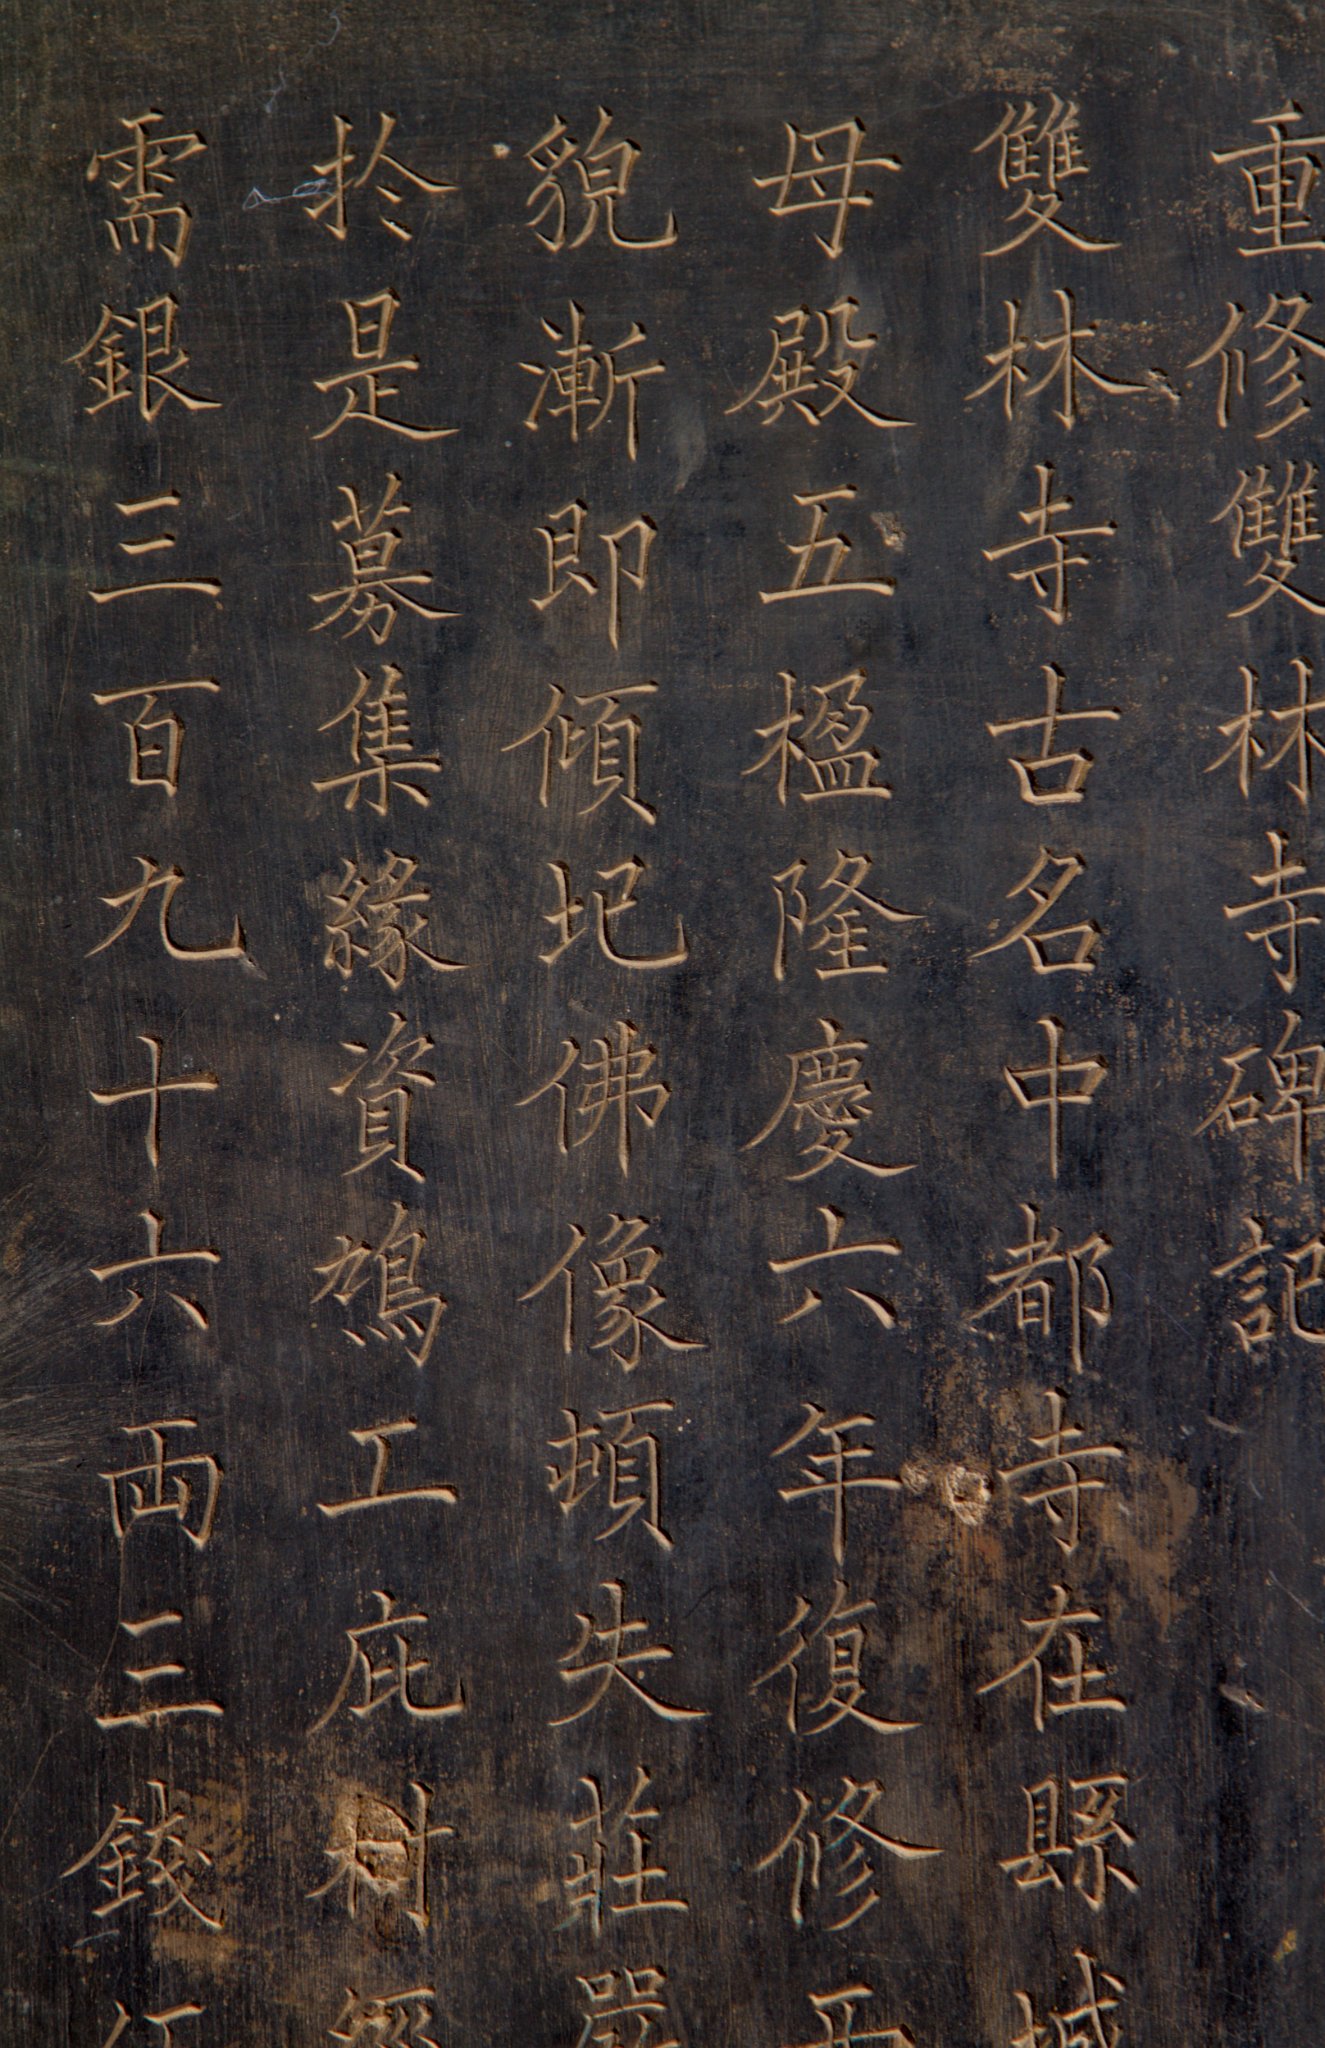 重修雙林寺碑記
雙林寺古名中都寺在縣城
母殿五楹隆慶六年復修
貌漸即傾圮佛像頓失莊嚴
於是募集緣資鳩工庇材
需銀三百九十六両三錢